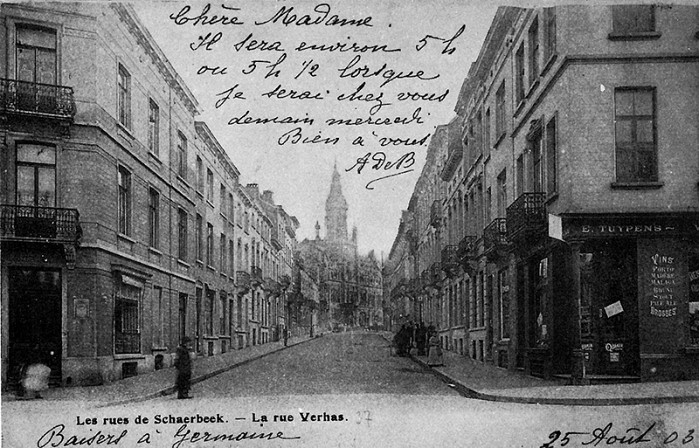 Chère Madame.
Il sera environ 5h
ou 5h 1/2 lorsque
je serai chez vous
demain mercredi
Bien à vous.
A De B
E. TUYPENS
VINS
PORTO
MADÈRE
MALAGA
STOUT
PALE ALE
BROSSES
Les rues de Schaerbeek. — La rue Verhas.
Baisers à Germaine
25 Août 03